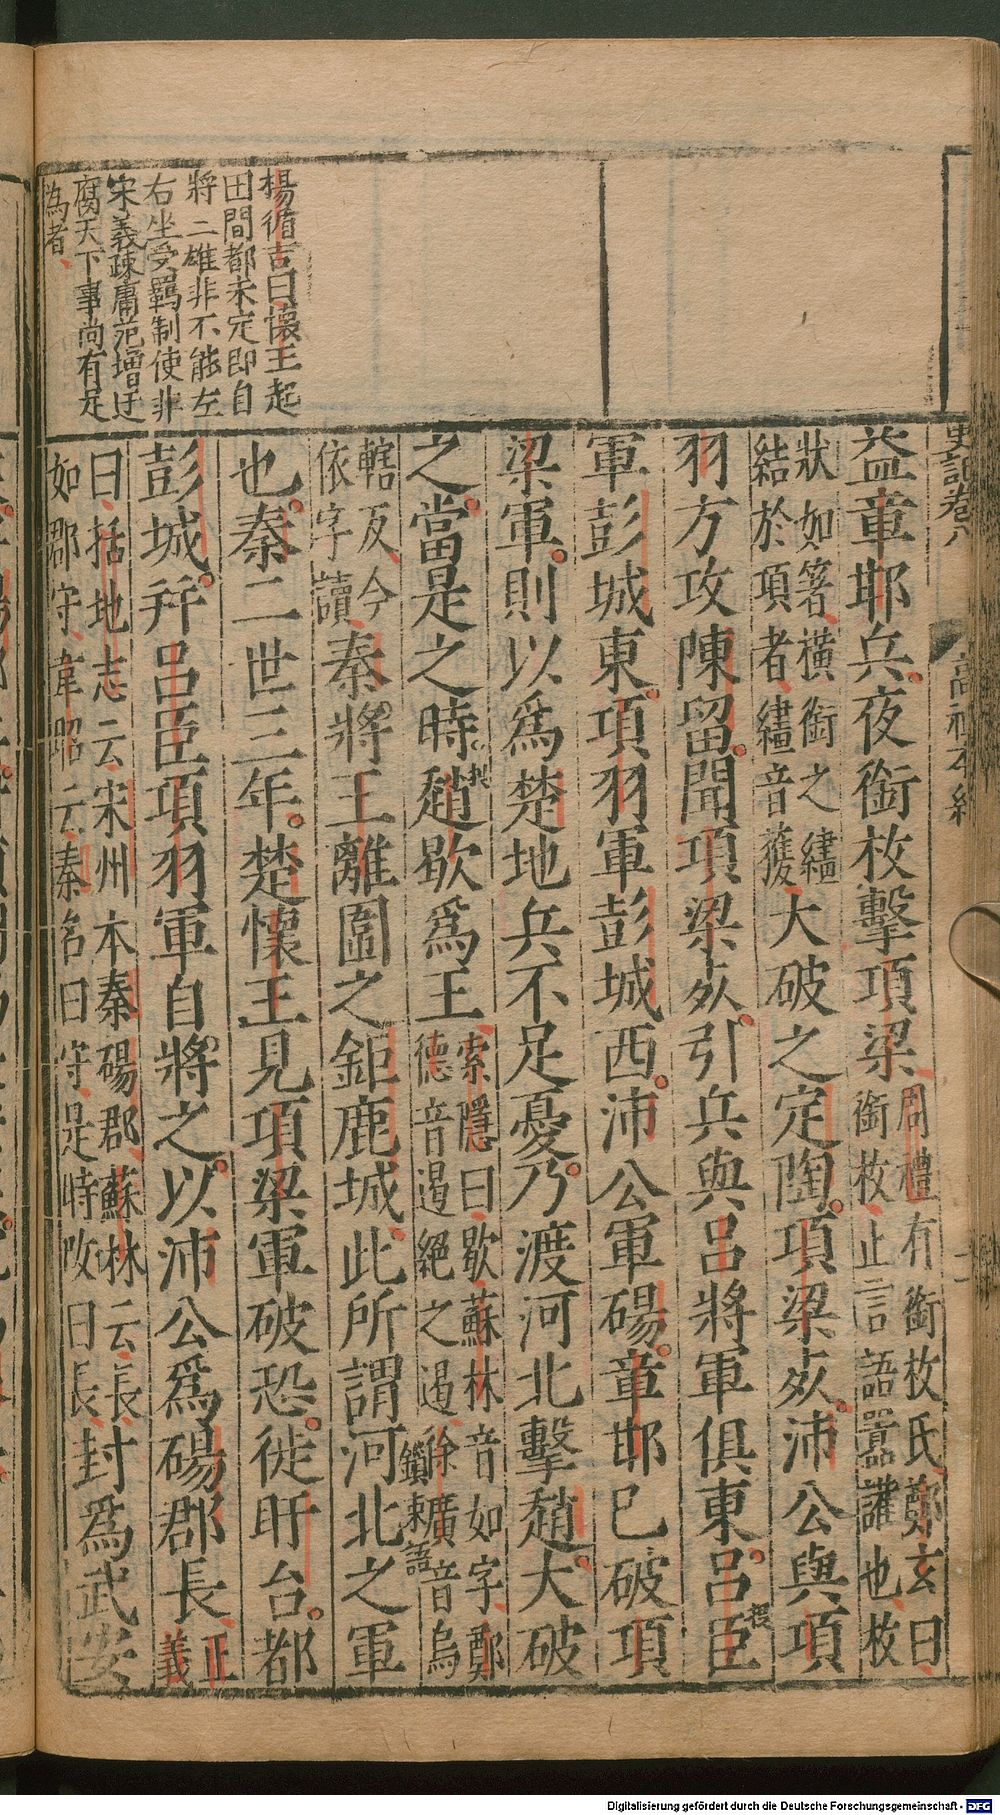 史記卷八
高祖本紀
益章邯兵夜銜枚擊項梁周禮有銜枚氏鄭玄曰銜枚止言語囂讙也枚
狀如箸橫銜之繣結於項者繣音獲大破之定陶項梁死沛公與項
羽方攻陳留聞項梁死引兵與呂將軍俱東呂臣
軍彭城東項羽軍彭城西沛公軍碭章邯已破項
梁軍則以爲楚地兵不足憂乃渡河北擊趙大破
之當是之時趙歇爲王索隱曰歇蘇林音如字鄭德音遏絕之遏徐廣音烏
轄反今依字讀秦將王離圍之鉅鹿城此所謂河北之軍
也秦二世三年楚懷王見項梁軍破恐徙盱台都
彭城幷呂臣項羽軍自將之以沛公爲碭郡長正義
曰括地志云宋州本秦碭郡蘇林云長如郡守韋昭云秦名曰守是時改曰長封爲武安
楊循吉曰懷王起
田間都未定即自
將二雄非不能左
右坐受羈制使非
宋義疎庸范增迂
腐天下事尚有足
為者
Digitalisierung gefördert durch die Deutsche Forschungsgemeinschaft - DFG